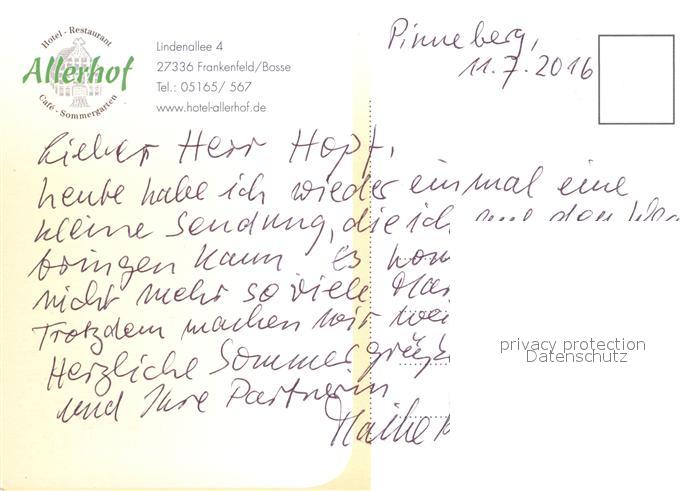 Hotel - Restaurant
Allerhof
Café - Sommergarten
Lindenallee 4
27336 Frankenfeld/Bosse
Tel.: 05165/ 567
www.hotel-allerhof.de
Pinneberg,
11.7.2016
Lieber Herr Hopf,
heute habe ich wieder einmal eine
kleine Sendung, die ich
bringen kann Es
nicht mehr so viele
Trotzdem machen wir
Herzliche Sommergrüße
und Ihre Partnerin
Maike
privacy protection
Datenschutz